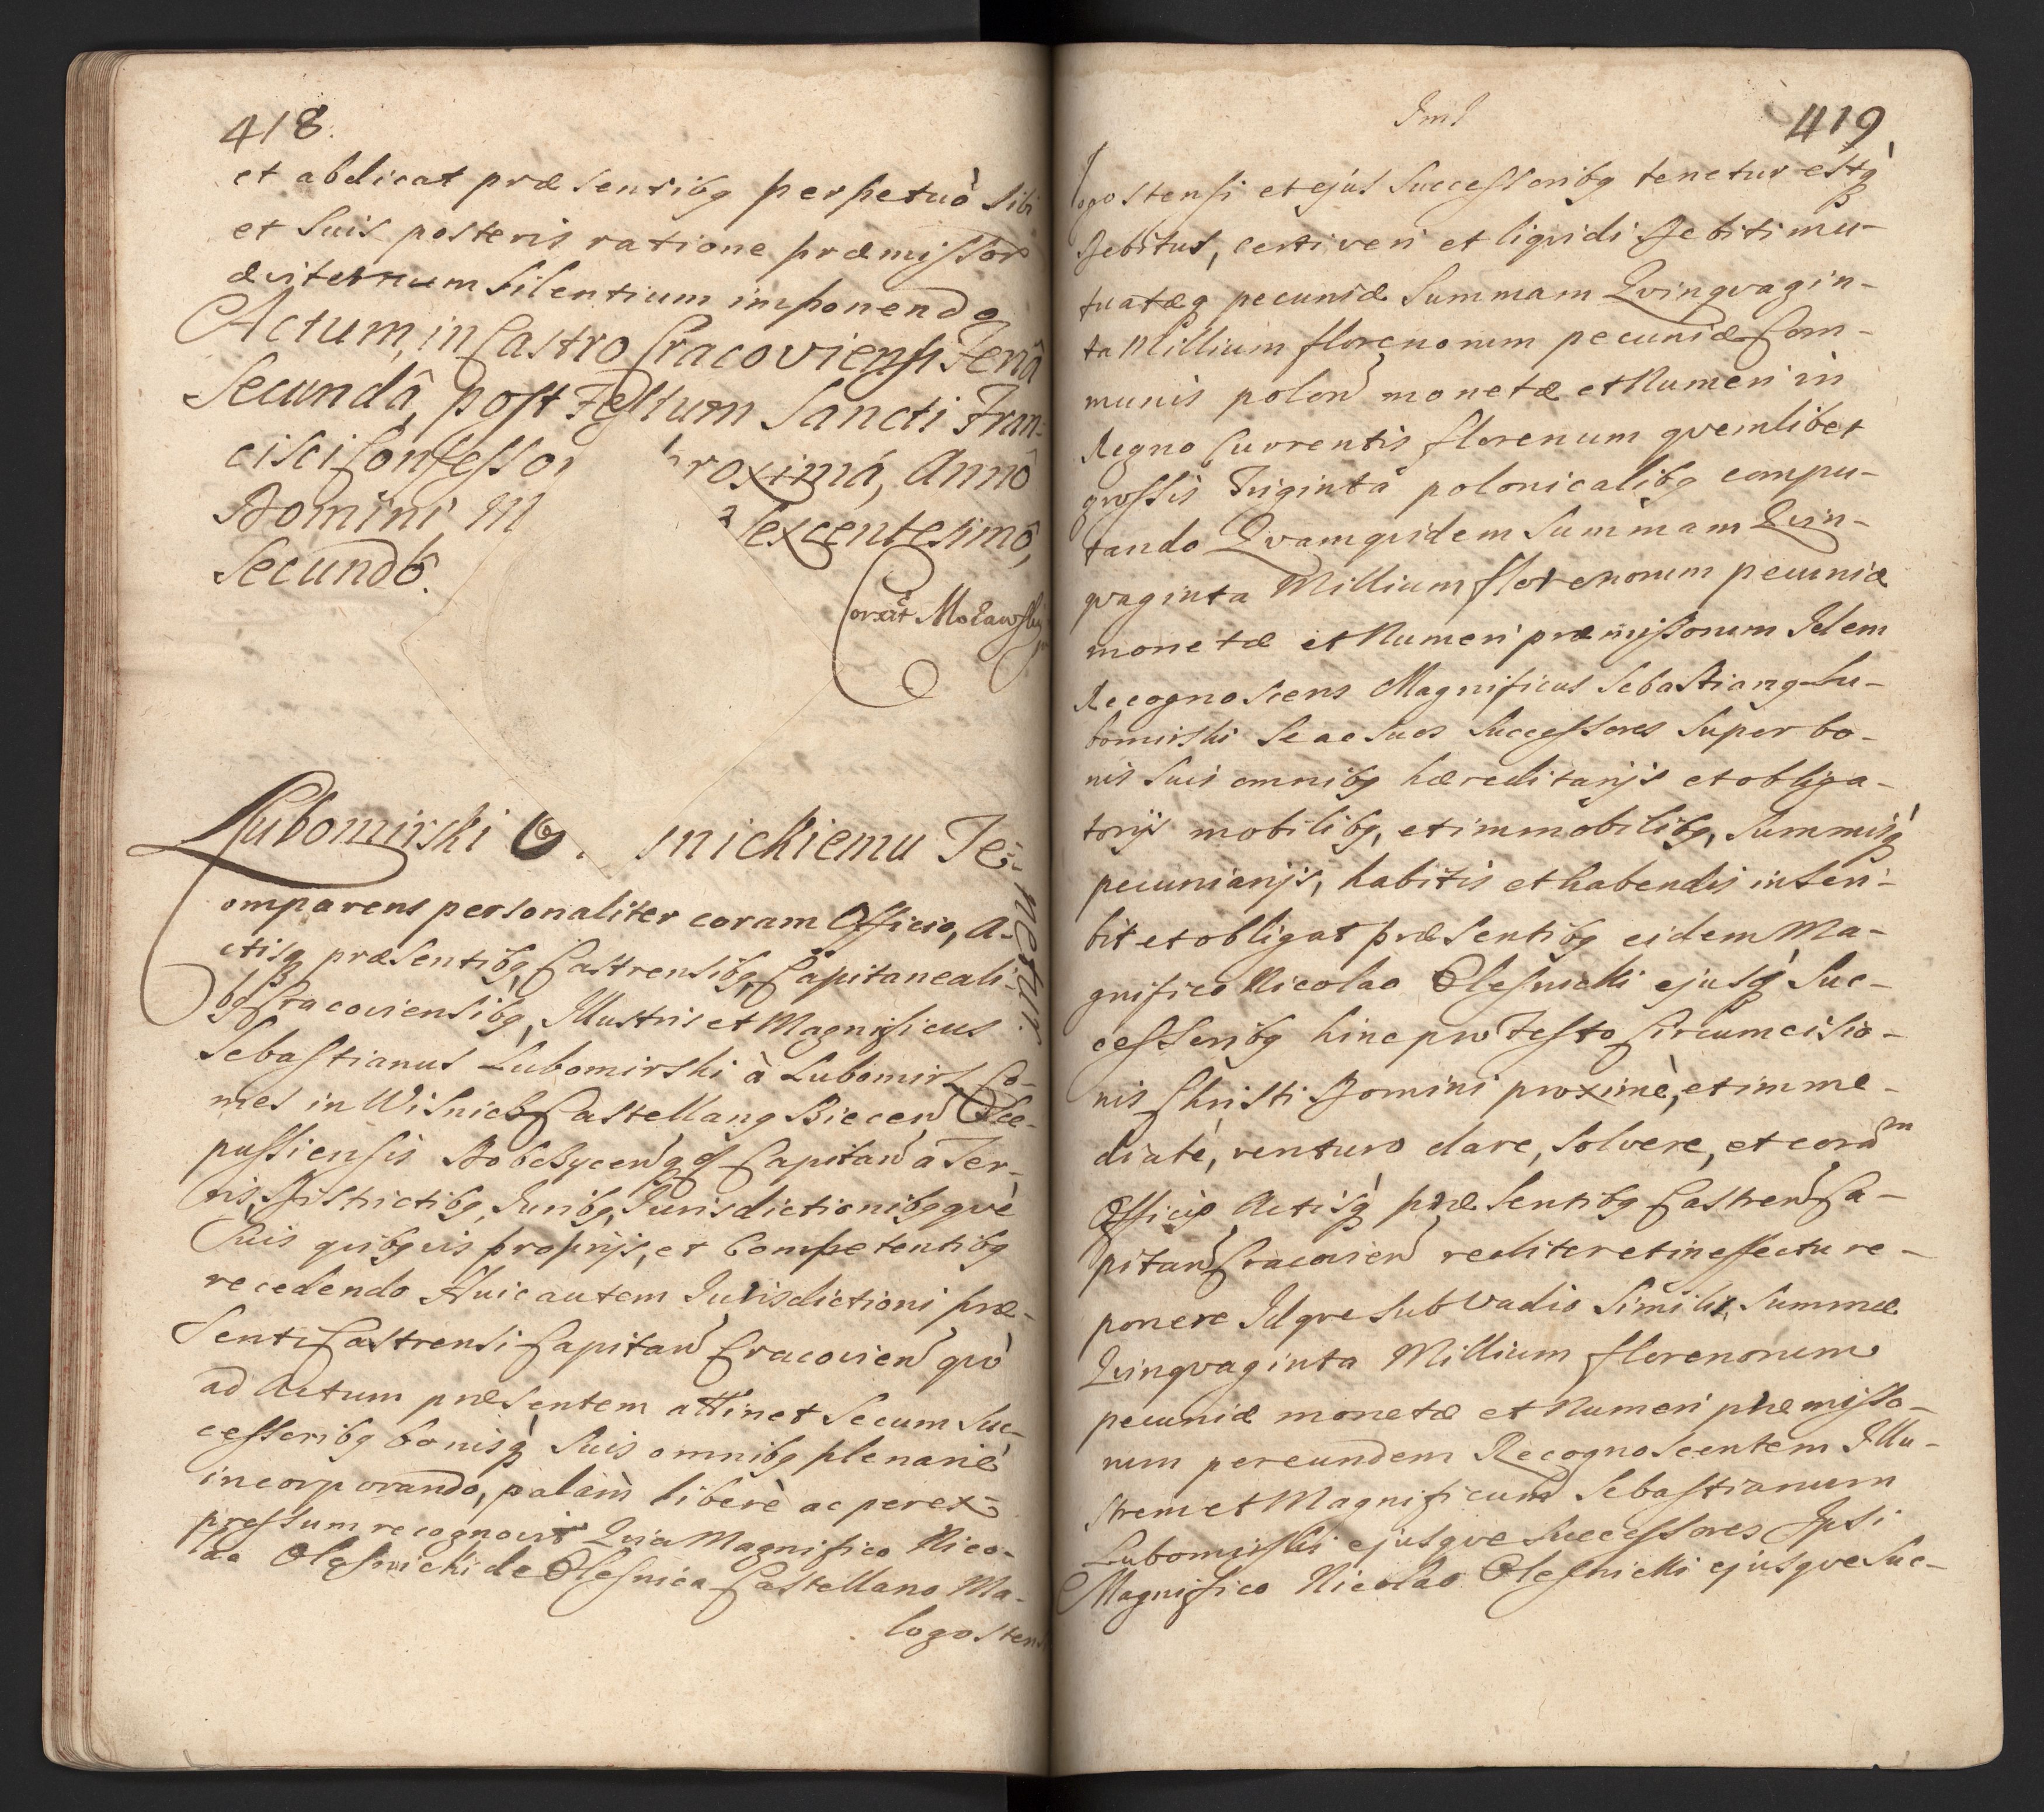 418.
et abdicat præsentibq perpetuò sibi
et suis posteris ratione præmissor
æviternum silentium imponendo
Actum, in Castro Cracoviensi Feriâ
Secundâ, post Festum Sancti Fran-
cisci Confesso proximá, Annô
Domini M sexcentesimô,
Secundô.
Lubomirski O snickiemu Te-
netur.
omparens personaliter coram Officio, A-
ctisq præsentibq, Castrensibq, Capitaneali-
bq Cracoviensibq, Illustris et Magnificus
Sebastianus Lubomirski à Lubomirz Co-
mes in Wisnicz Castellanq Biecen Sce-
pusiensis Dobczycen qq Capitan a Ter-
ris, Districtibq, Juribq, Jurisdictionibqquè
suis quibqvis proprijs, et Competentibq
recedendo Huic autem Jurisdictioni præ-
senti Castrensi Capitan Cracovien quò
ad Actum præsentem attinet secum suc-
cessoribq bonisq suis omnibq plenariè
incorporando, palàm liberè ac per ex-
pressum recognovit Quia Magnifico Nico-
lao Olesnicki de Olesnica Castellano Ma-
logosten
419
logostensi et ejús successoribq tenetur estq
debitus, certi veri et liqvidi debiti mu-
tuatæq pecuniæ summam Qvinqvagin-
ta Millium florenorum pecuniæ Com-
munis polon monetæ et Numeri in
Regno Currentis florenum qvemlibet
grossis Triginta polonicalibq compu-
tando Qvamqvidem summam Qvin-
qvaginta Millium florenorum pecuniæ
monetæ et Numeri præmissorum Idem
Recognoscens Magnificus Sebastianq Lu-
bomirski se ac suos successores super bo-
nis suis omnibq hæreditarijs et obliga-
torijs mobilibq, et immobilibq, summisq
pecuniarijs, habitis et habendis inscri-
bit et obligat præsentibq eidem Ma-
gnifico Nicolao Olesnicki ejusq suc-
cessoribq hinc pro Festo Circumcisio-
nis Christi Domini proximè, et imme-
diatè, venturo dare, solvere, et corãm
Officio Actisq præsentibq Castren Ca-
pitan Cracovien realiter et in effectu re-
ponere Idqve sub vadio similis summæ
Qvinqvaginta Millium florenorum
pecuniæ monetæ et Numeri præmisso-
rum per eundem Recognoscentem Illu-
strem et Magnificum Sebastianum
Lubomirski ejusqve successores Ipsi
Magnifico Nicolao Olesnicki ejusqve suc-